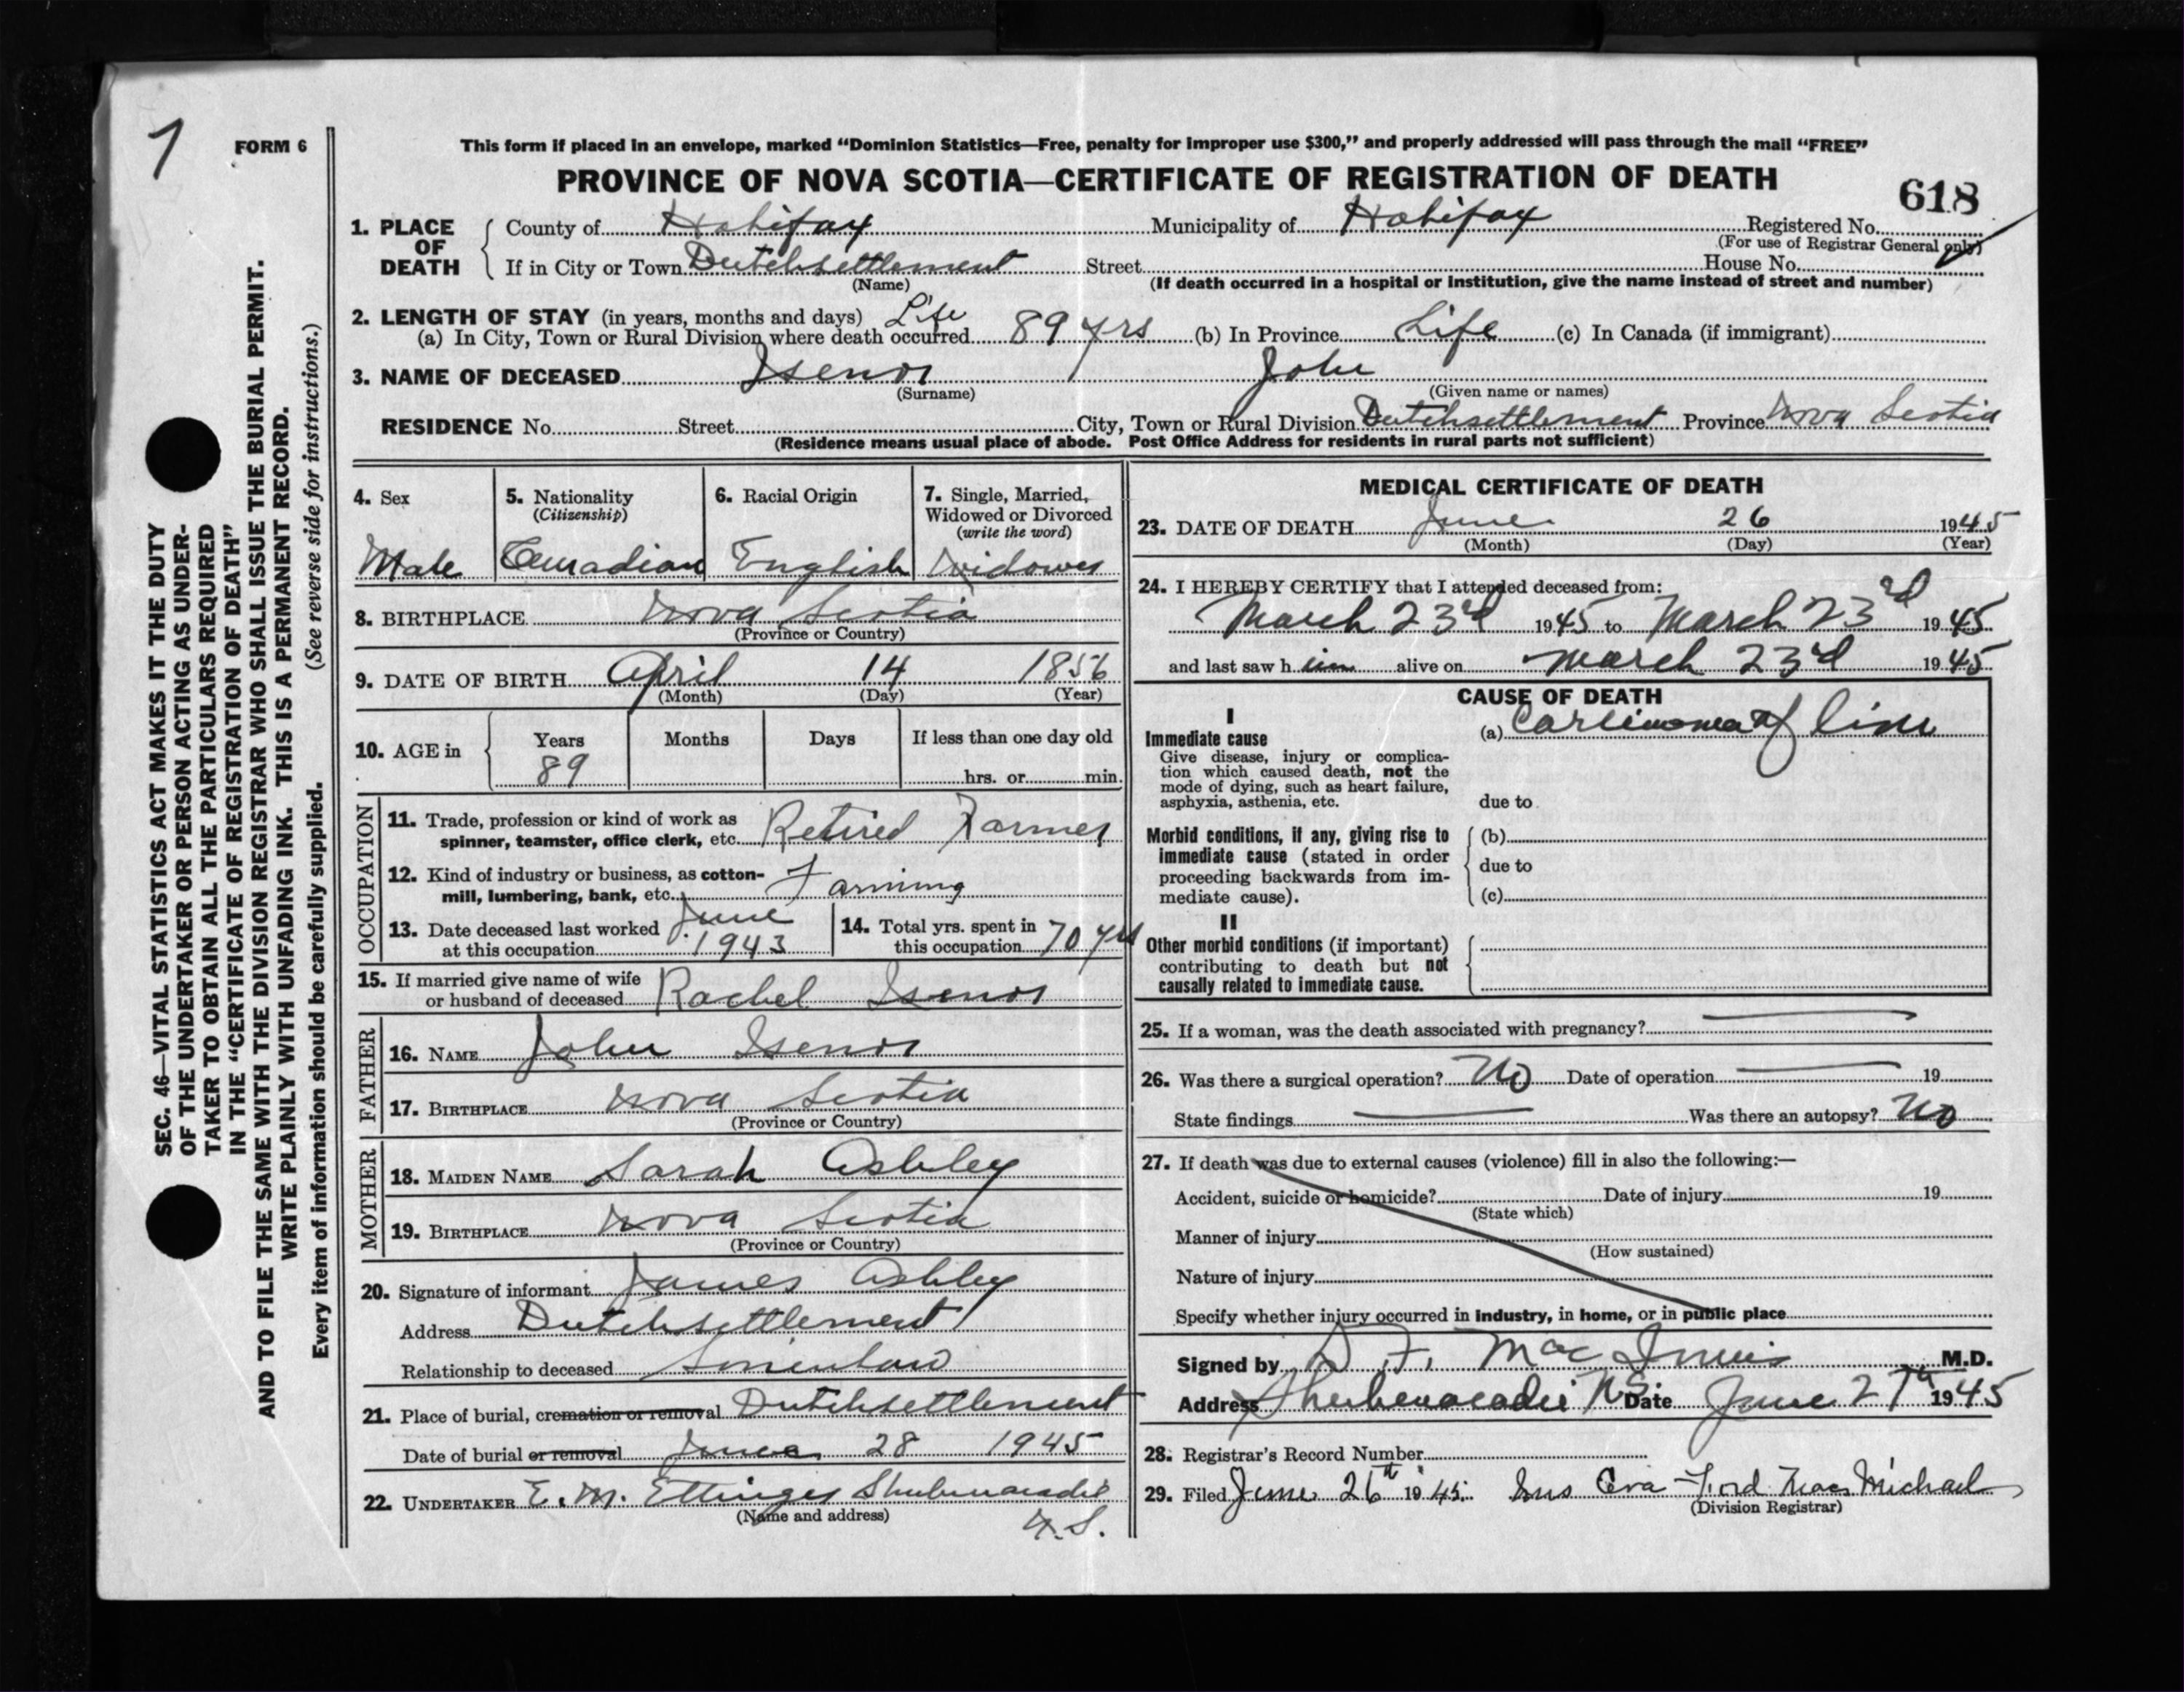 7
FORM 6
This form if placed in an envelope, marked “Dominion Statistics—Free, penalty for improper use $300,” and properly addressed will pass through the mail “FREE”
PROVINCE OF NOVA SCOTIA—CERTIFICATE OF REGISTRATION OF DEATH
618
1. PLACE OF DEATH County of Halifax Municipality of Halifax Registered No.
(For use of Registrar General only)
If in City or Town Dutchsettlement Street House No.
(Name) (If death occurred in a hospital or institution, give the name instead of street and number)
2. LENGTH OF STAY (in years, months and days) Life
(a) In City, Town or Rural Division where death occurred 89 yrs (b) In Province Life (c) In Canada (if immigrant)
3. NAME OF DECEASED Isenor John
(Surname) (Given name or names)
RESIDENCE No. Street City, Town or Rural Division Dutchsettlement Province Nova Scotia
(Residence means usual place of abode. Post Office Address for residents in rural parts not sufficient)
4. Sex
Male
5. Nationality
(Citizenship)
Canadian
6. Racial Origin
English
7. Single, Married,
Widowed or Divorced
(write the word)
Widower
8. BIRTHPLACE Nova Scotia
(Province or Country)
9. DATE OF BIRTH April 14 1856
(Month) (Day) (Year)
10. AGE in Years Months Days If less than one day old
89 hrs. or min.
OCCUPATION
11. Trade, profession or kind of work as
spinner, teamster, office clerk, etc. Retired Farmer
12. Kind of industry or business, as cotton-
mill, lumbering, bank, etc. Farming
13. Date deceased last worked June
at this occupation 1943
14. Total yrs. spent in
this occupation 70 yrs
15. If married give name of wife
or husband of deceased Rachel Isenor
FATHER
16. NAME John Isenor
17. BIRTHPLACE Nova Scotia
(Province or Country)
MOTHER
18. MAIDEN NAME Sarah Ashley
19. BIRTHPLACE Nova Scotia
(Province or Country)
20. Signature of informant James Ashley
Address Dutchsettlement
Relationship to deceased Soninlaw
21. Place of burial, cremation or removal Dutchsettlement
Date of burial or removal June 28 1945
22. UNDERTAKER E. M. Ettinger Shubenacadie
(Name and address) N.S.
MEDICAL CERTIFICATE OF DEATH
23. DATE OF DEATH June 26 1945
(Month) (Day) (Year)
24. I HEREBY CERTIFY that I attended deceased from:
March 23rd 1945 to March 23rd 1945
and last saw h im alive on March 23rd 1945
CAUSE OF DEATH
I
Immediate cause
Give disease, injury or complica-
tion which caused death, not the
mode of dying, such as heart failure,
asphyxia, asthenia, etc.
(a) Carcinoma of
due to
Morbid conditions, if any, giving rise to
immediate cause (stated in order
proceeding backwards from im-
mediate cause).
(b)
due to
(c)
II
Other morbid conditions (if important)
contributing to death but not
causally related to immediate cause.
25. If a woman, was the death associated with pregnancy?
26. Was there a surgical operation? No Date of operation 19
State findings Was there an autopsy? No
27. If death was due to external causes (violence) fill in also the following:—
Accident, suicide or homicide? Date of injury 19
(State which)
Manner of injury
(How sustained)
Nature of injury
Specify whether injury occurred in industry, in home, or in public place
Signed by D. F. MacInnis M.D.
Address Shubenacadie NS. Date June 27th 1945
28. Registrar's Record Number
29. Filed June 26th 1945. Mrs Eva Ford MacMichael
(Division Registrar)
SEC. 46—VITAL STATISTICS ACT MAKES IT THE DUTY
OF THE UNDERTAKER OR PERSON ACTING AS UNDER-
TAKER TO OBTAIN ALL THE PARTICULARS REQUIRED
IN THE “CERTIFICATE OF REGISTRATION OF DEATH”
AND TO FILE THE SAME WITH THE DIVISION REGISTRAR WHO SHALL ISSUE THE BURIAL PERMIT.
WRITE PLAINLY WITH UNFADING INK. THIS IS A PERMANENT RECORD.
Every item of information should be carefully supplied. (See reverse side for instructions.)